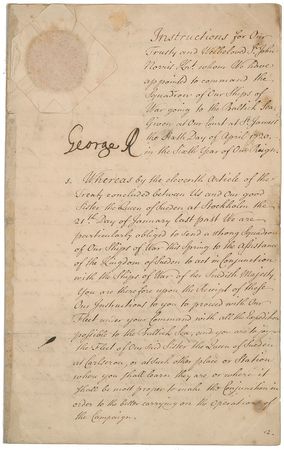 Instructions for Our
Trusty and Welbeloved Sr. John
Norris Knt. whom We have
appointed to command the
Squadron of Our Ships of
War going to the Baltick Sea.
Given at Our Court at St. James's
the Sixth Day of April 1720.
in the Sixth Year of Our Reign.
George R
1. Whereas by the eleventh Article of the
Treaty concluded between Us and Our good
Sister the Queen of Sweden at Stockholm the
21st. Day of January last past We are
particularly obliged to send a strong Squadron
of Our Ships of War this Spring to the Assistance
of the Kingdom of Sweden to act in Conjunction
with the Ships of War of her Swedish Majesty
You are therefore upon the Receipt of these
Our Instructions to you to proceed with Our
Fleet under your Command with all the Expedition
possible to the Baltick Sea, and you are to joyn
the Fleet of Our Sister the Queen of Sweden
at Carlscron, or at such other place or Station
where you shall learn they are, or where it
shall be most proper to make this Conjunction in
order to the better carrying on the Operations of
the Campaign.
2.